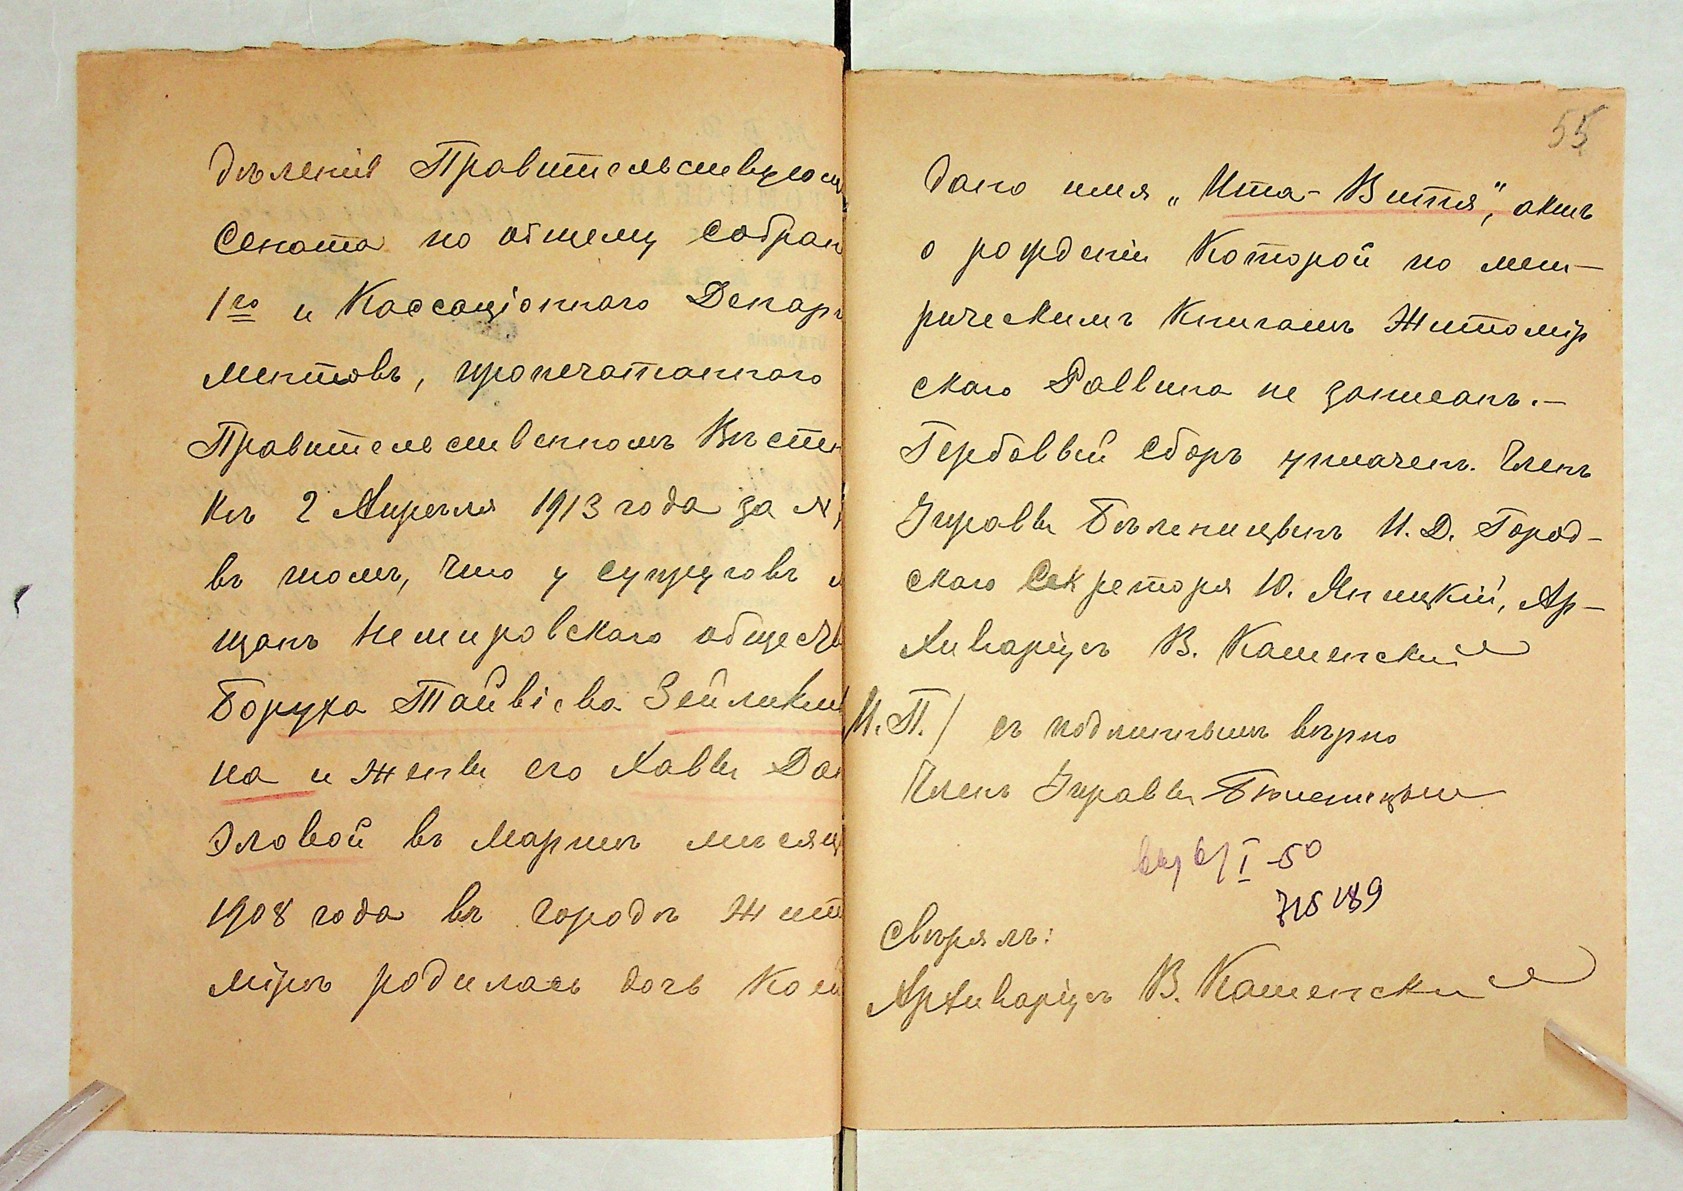 дѣленія Правительствующ
Сената по общему собран
1го и Кассаціоннаго Депар
ментовъ, пропечатаннаго
Правительственномъ Вѣстн
кѣ 2 Апрѣля 1913 года за №
въ томъ, что у супруговъ м
щанъ Немировскаго общест
Боруха Тайвіева Зейликм
на и жены его Хавы Да
эловой въ Мартѣ мѣсяц
1908 года въ городѣ Жит
мірѣ родилась дочь Кои
55
дано имя „Ита-Витя", актъ
о рожденіи Которой по мет-
рическимъ Книгамъ Житомір
скаго Раввина не записанъ.-
Гербовый сборъ уплаченъ. Членъ
Управы Бѣленицынъ И. Д. Город-
скаго Секретаря Ю. Яницкій, Ар-
хиваріусъ В. Каменскій
М.П./ съ подлиннымъ вѣрно
Членъ Управы
I 50
Свѣрялъ:
Архиваріусъ В. Каменскій